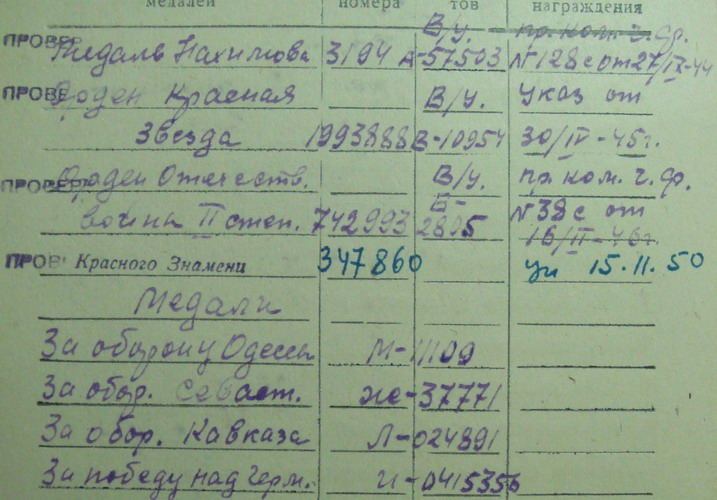 медалей номера тов награждения
В/у. пр. ком. ч. ф.
ПРОВЕР Медаль Нахимова 3194 А-57503 №128с от 27/IX-44
ПРОВЕ Орден Красная В/у. Указ от
Звезда 1993888 В-10954 30/IV-45г.
ПРОВЕР Орден Отечеств. В/у. пр. ком. ч. ф.
Б-
войны II степ. 742993 2895 №38с от
16/II-46г.
ПРОВ Красного Знамени 347860 ук 15.11.50
Медали
За оборону Одессы М-11109
За обор. Севаст. Ж-37771
За обор. Кавказа Л-024891
За победу над Герм. И-0415356